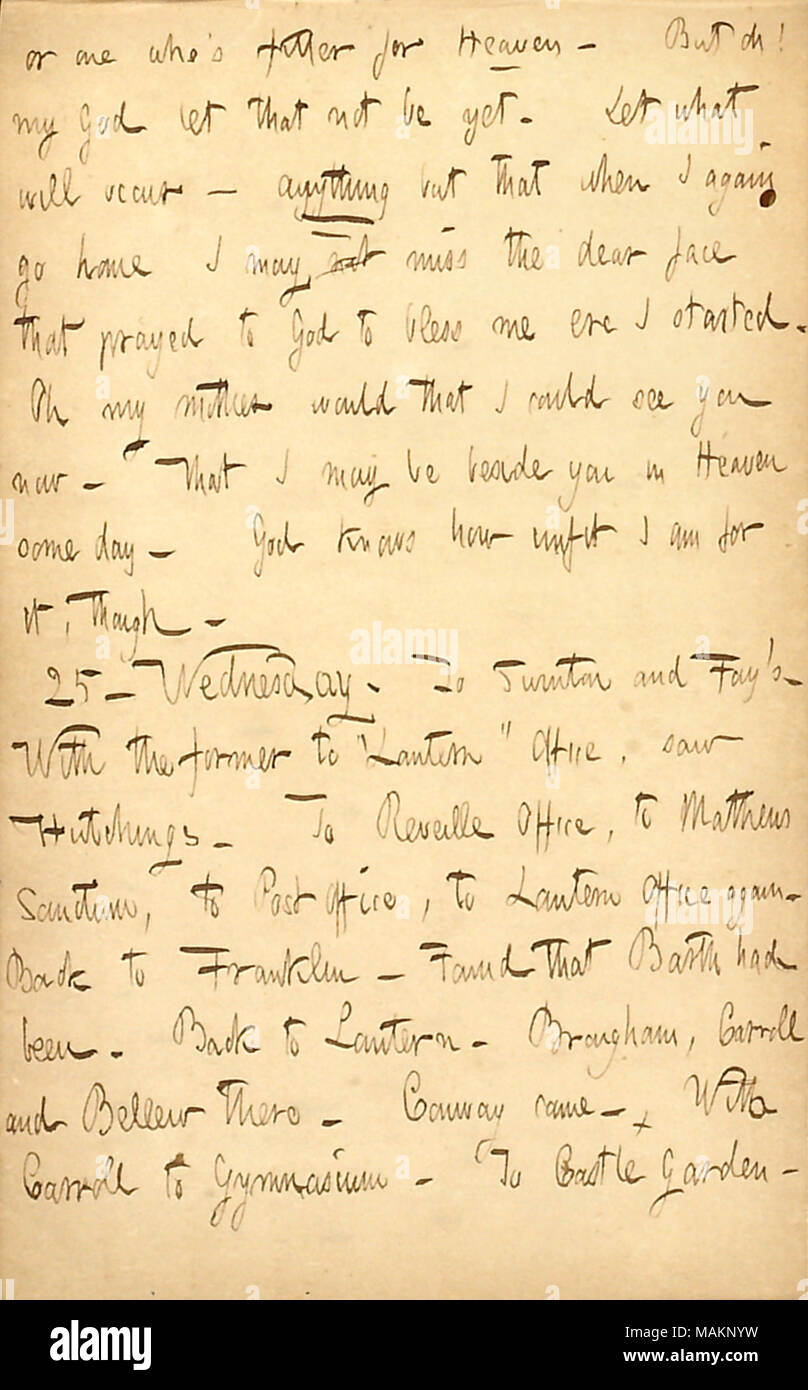 or one who's fitter for Heaven — But oh!
my God let that not be yet. Let what
will occur — anything but that when I again
go home I may not miss the dear face
that prayed to God to bless me ere I started.
Oh my mother would that I could see you
now — That I may be beside you in Heaven
some day — God knows how unfit I am for
it, though —
25 — Wednesday. To Swinton and Fay's —
With the former to "Lantern" Office, saw
Hutchings — To Reveille Office, to Mathews
Sanctum, to Post Office, to Lantern Office again —
Back to Franklin — Found that Barth had
been. Back to Lantern — Brougham, Carroll
and Bellew there — Conway came —x With
Carroll to Gymnasium — To Castle Garden —
alamy
Image ID: MAKNYW
www.alamy.com